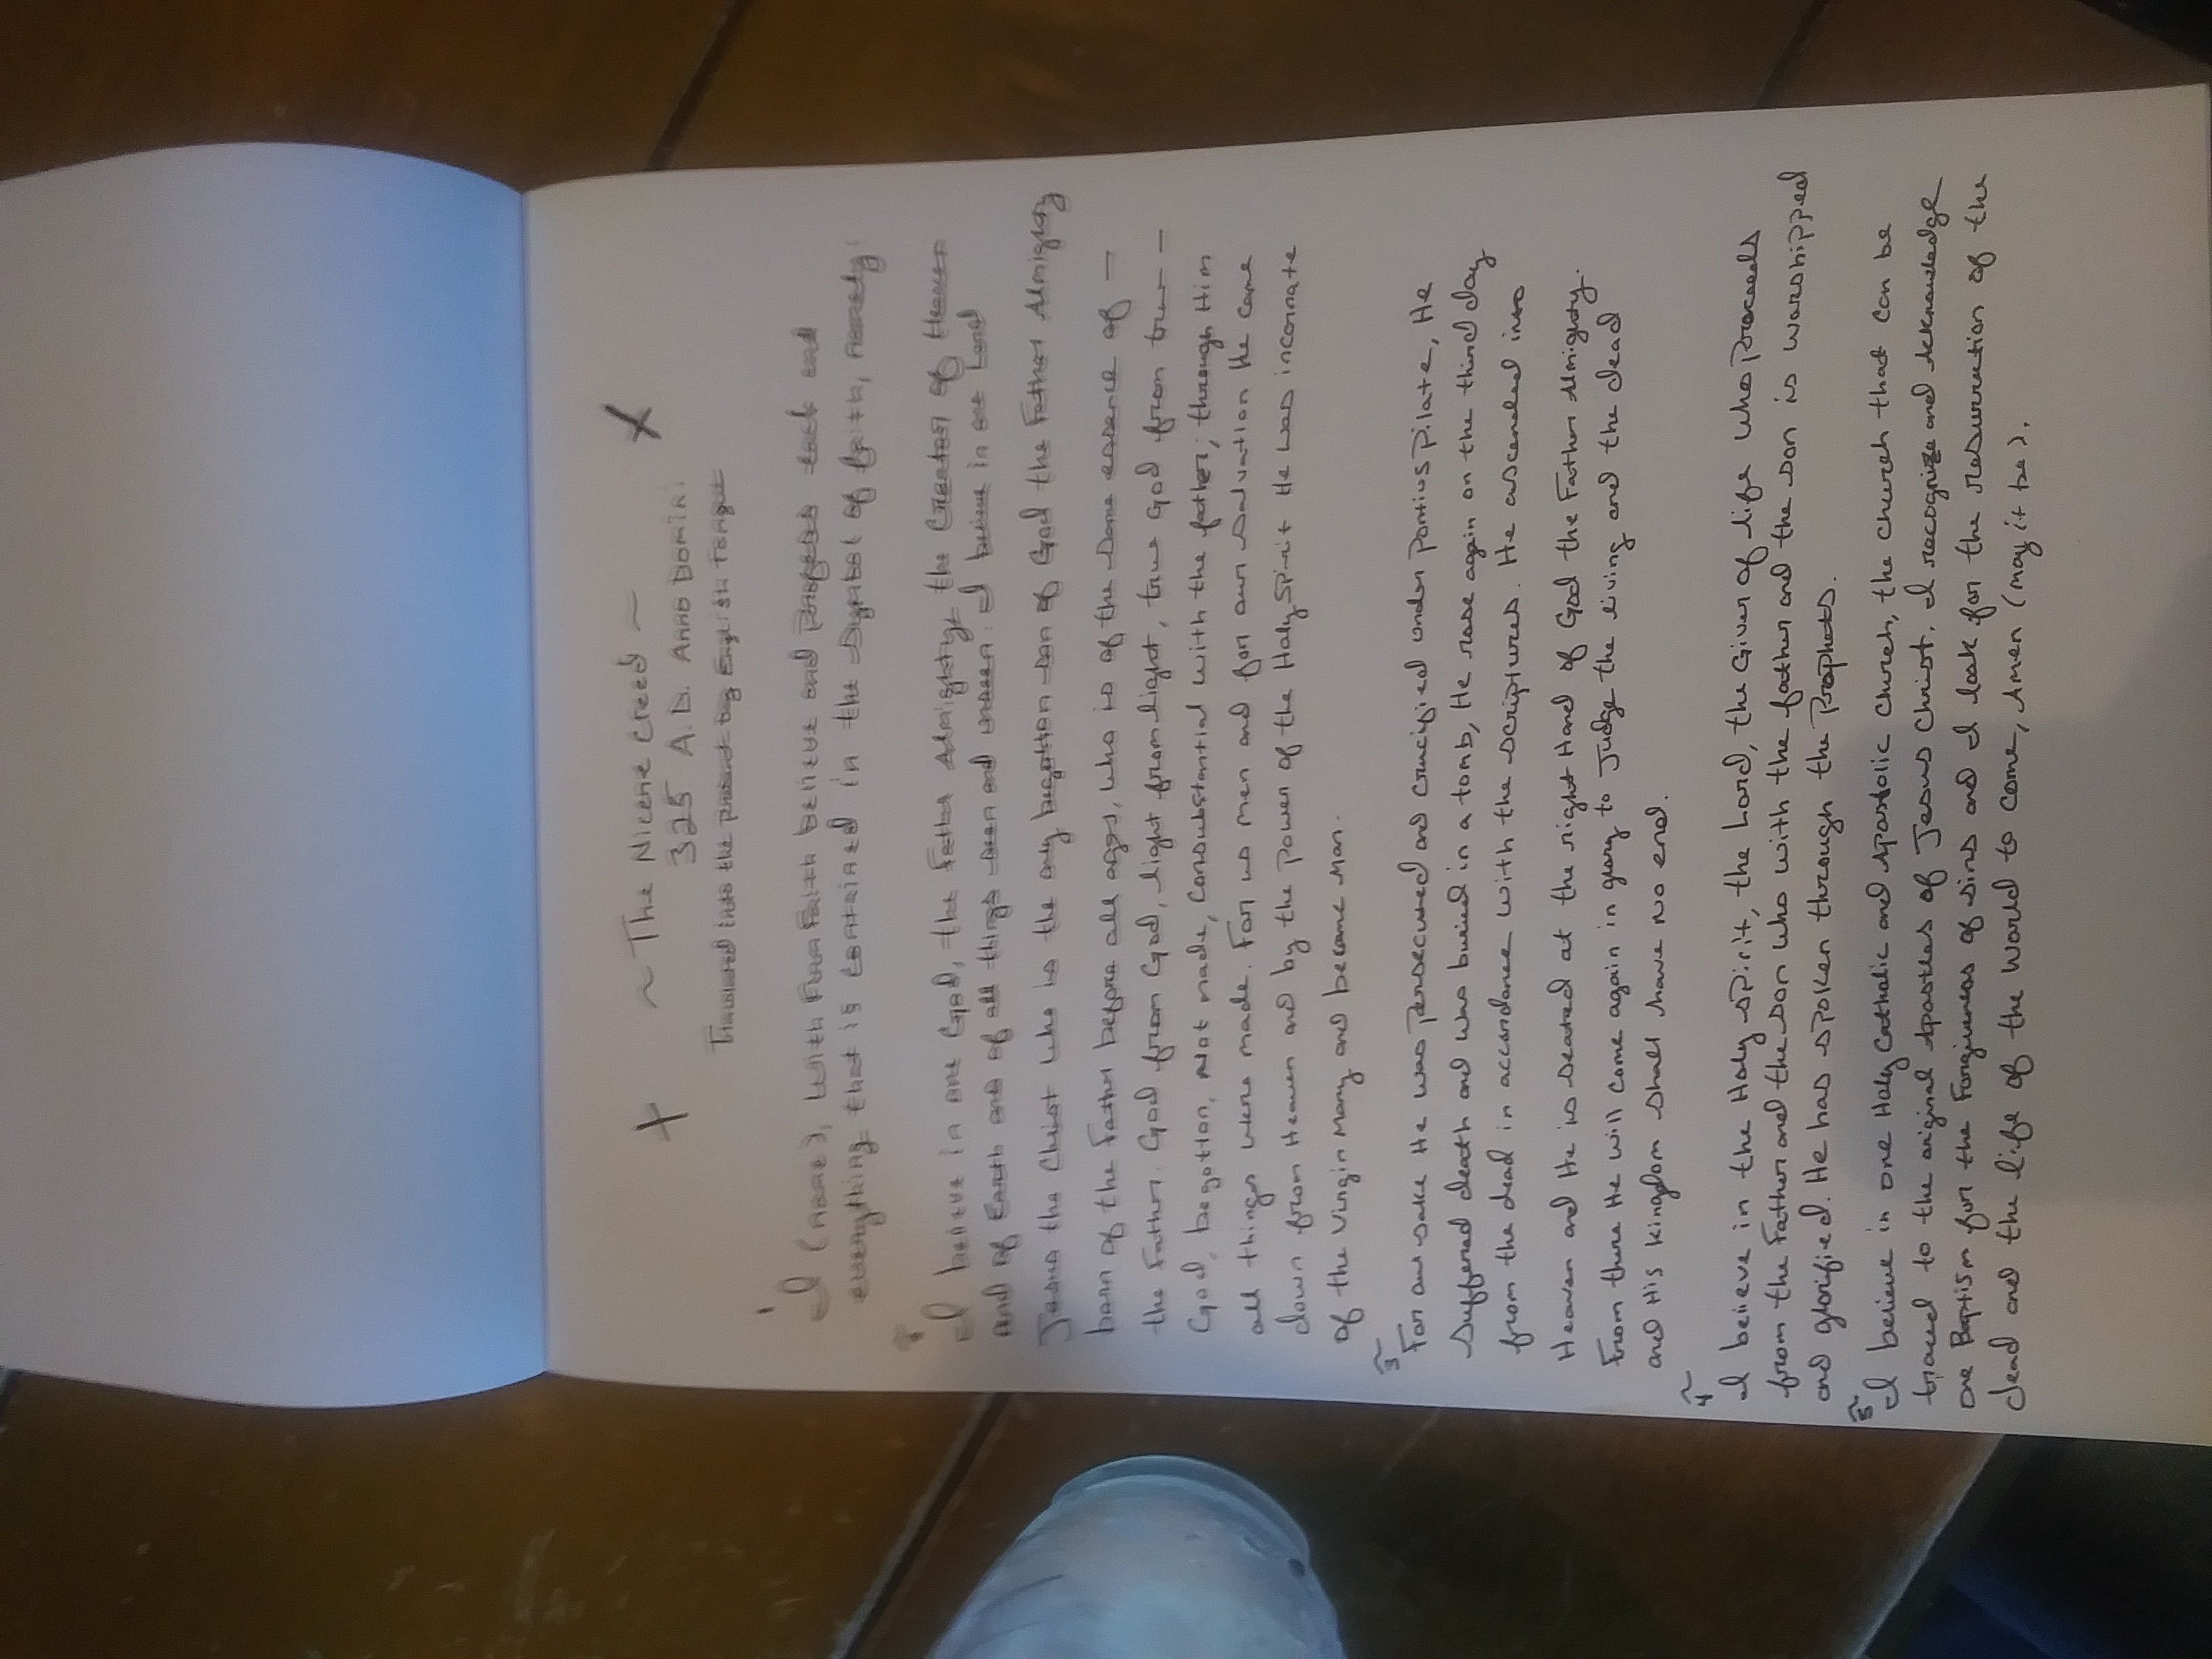 ~ The Nicene Creed ~
325 A.D. Anno Domini
Translated into the present day English Tongue
1
I (name), with Firm Faith believe and profess each and
everything that is contained in the Symbol of faith, namely:
2
I believe in one God, the Father Almighty, the Creator of Heaven
and of Earth and of all things seen and unseen. I believe in one Lord
Jesus the Christ who is the only begotton son of God the Father Almighty
born of the Father before all ages, who is of the same essence of —
the Father. God from God, light from light, true God from true —
God, begotton, not made, consubstantial with the father; through Him
all things were made. For us men and for our salvation He came
down from Heaven and by the power of the Holy Spirit He was incarnate
of the Virgin Mary and became Man.
3
For our sake He was persecuted and crucified under Pontius Pilate, He
suffered death and was buried in a tomb, He rose again on the third day
from the dead in accordance with the scriptures. He ascended into
Heaven and He is seated at the right Hand of God the Father Almighty.
From there He will come again in glory to Judge the living and the dead
and His kingdom shall have no end.
4
I believe in the Holy Spirit, the Lord, the Giver of life who proceeds
from the Father and the son who with the father and the son is worshipped
and glorified. He has spoken through the Prophets.
5
I believe in one Holy Catholic and Apostolic Church, the church that can be
traced to the original Apostles of Jesus Christ. I recognize and Acknowledge
one Baptism for the Forgiveness of sins and I look for the resurrection of the
dead and the life of the world to come, Amen (may it be).